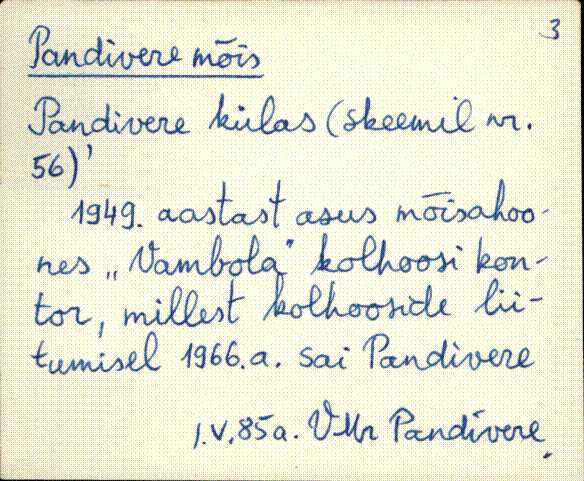 3
Pandivere mõis
Pandivere külas (skeemil nr.
56)'
1949. aastast asus mõisahoo-
nes „Vambola" kolhoosi kon-
tor, millest kolhooside lii-
tumisel 1966.a. sai Pandivere
1.V.85a. VMr Pandivere.